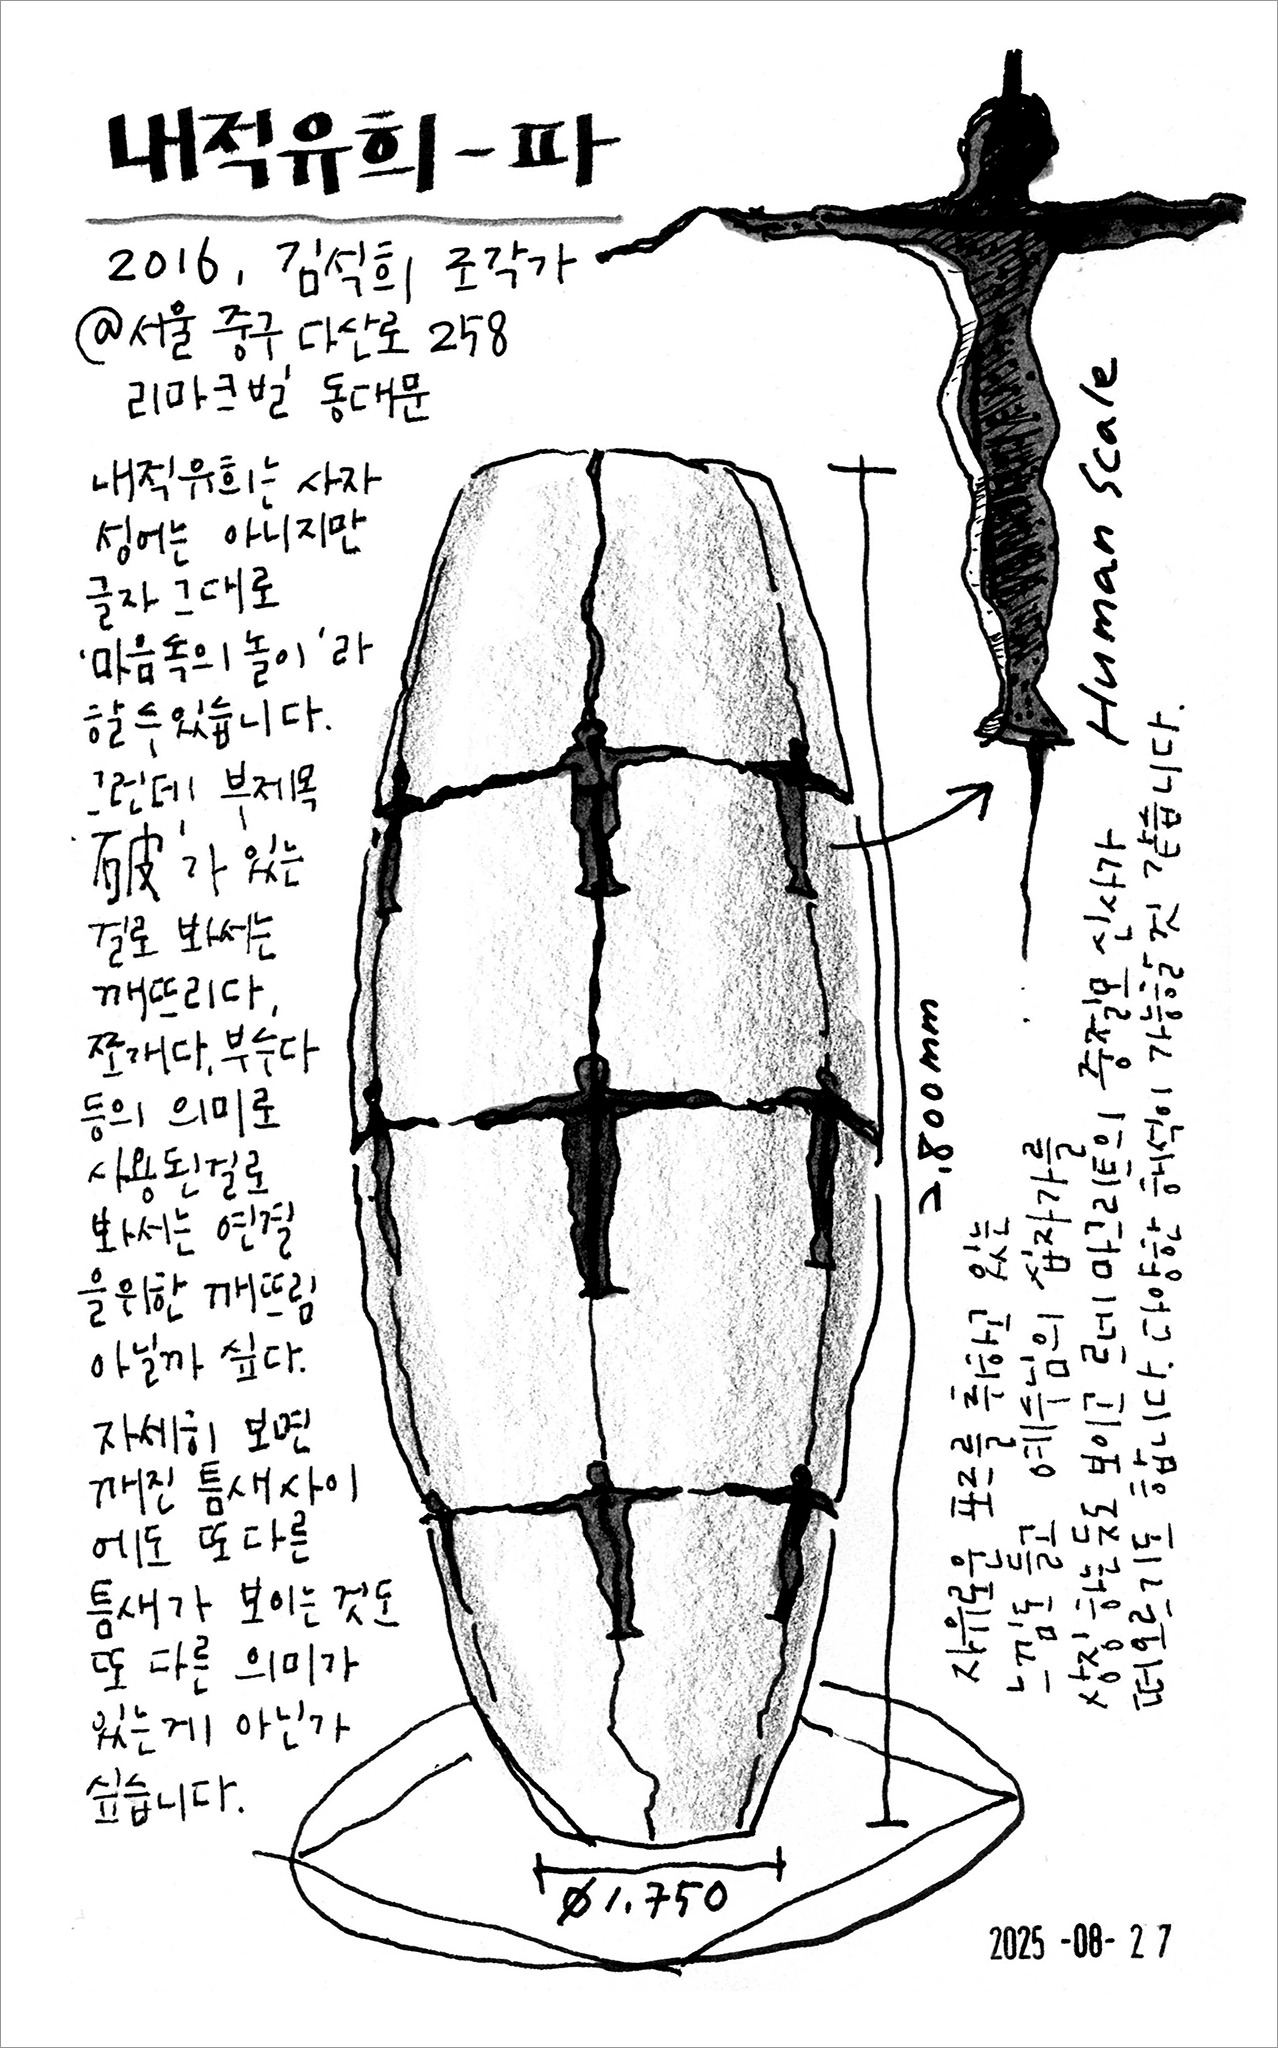 내적유희-파
2016, 김석희 조각가
@서울 중구 다산로 258
리마크빌 동대문
내적유희는 사자
성어는 아니지만
글자 그대로
'마음속의 놀이'라
할 수 있습니다.
그런데 부제목
'破'가 있는
걸로 봐서는
깨뜨리다,
쪼개다, 부수다
등의 의미로
사용된걸로
봐서는 연결
을위한 깨뜨림
아닐까 싶다.
자세히 보면
깨진 틈새사이
에도 또다른
틈새가 보이는 것도
또 다른 의미가
있는게 아닌가
싶습니다.
Human Scale
2.800mm
자유로운 포즈를 취하고 있는
느낌도 들고 예수님의 십자가를
상징하는듯도 보이고 르네마그리트의 중절모 신사가
떠오르기도 합니다. 다양한 해석이 가능할 것 같습니다.
ø1.750
2025-08-27